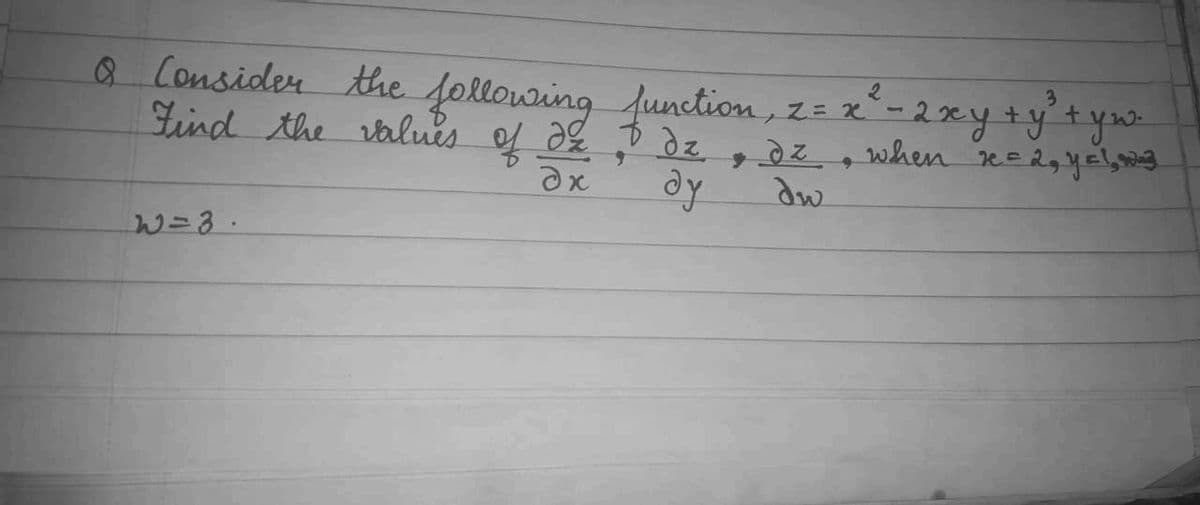 Q Consider the following function, z = x² - 2xy + y³ + yw.
Find the values of ∂z/∂x, ∂z/∂y, ∂z/∂w, when x = 2, y = 1,
w = 3.